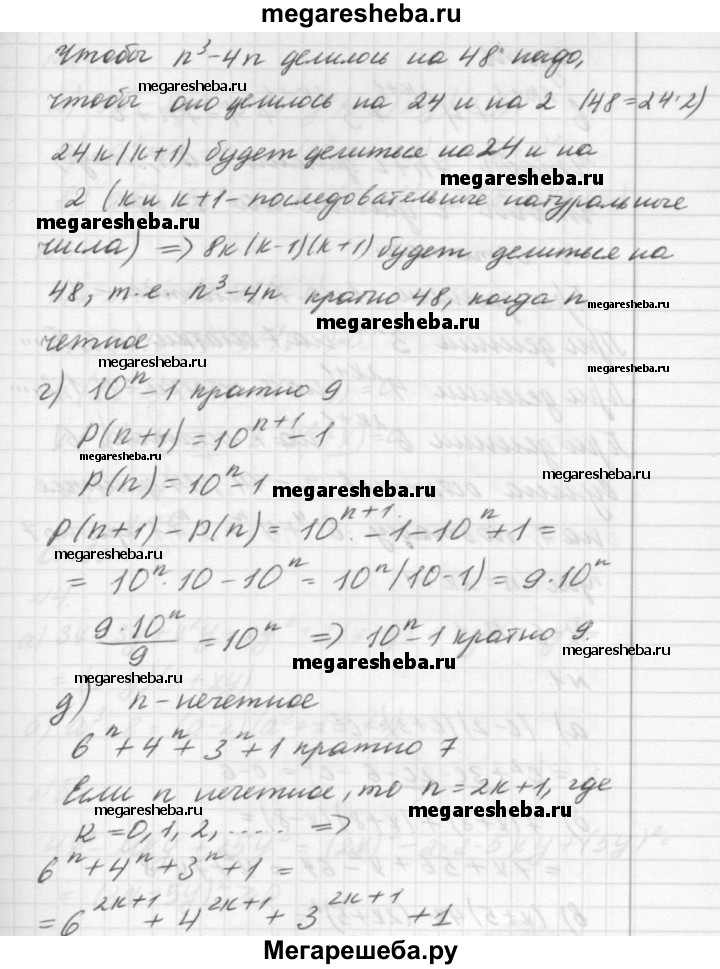 megaresheba.ru
Чтобы n³-4n делилось на 48 надо,
megaresheba.ru
чтобы оно делилось на 24 и на 2 (48=24·2)
24k(k+1) будет делиться на 24 и на
megaresheba.ru
2 (k и k+1 - последовательные натуральные
megaresheba.ru
числа) => 8k(k-1)(k+1) будет делиться на
48, т.е n³-4n кратно 48, когда n
megaresheba.ru
megaresheba.ru
четное
megaresheba.ru
megaresheba.ru
г) 10ⁿ-1 кратно 9
P(n+1)=10ⁿ⁺¹-1
megaresheba.ru
P(n)=10ⁿ-1
megaresheba.ru
megaresheba.ru
P(n+1)-P(n)=10ⁿ⁺¹-1-10ⁿ+1=
megaresheba.ru
=10ⁿ·10-10ⁿ=10ⁿ(10-1)=9·10ⁿ
9·10ⁿ/9=10ⁿ => 10ⁿ-1 кратно 9.
megaresheba.ru
megaresheba.ru
д) n-нечетное
6ⁿ+4ⁿ+3ⁿ+1 кратно 7
Если n нечетное, то n=2k+1, где
megaresheba.ru
megaresheba.ru
k=0,1,2,..... =>
6ⁿ+4ⁿ+3ⁿ+1=
=6²ᵏ⁺¹+4²ᵏ⁺¹+3²ᵏ⁺¹+1
Мегарешеба.ру